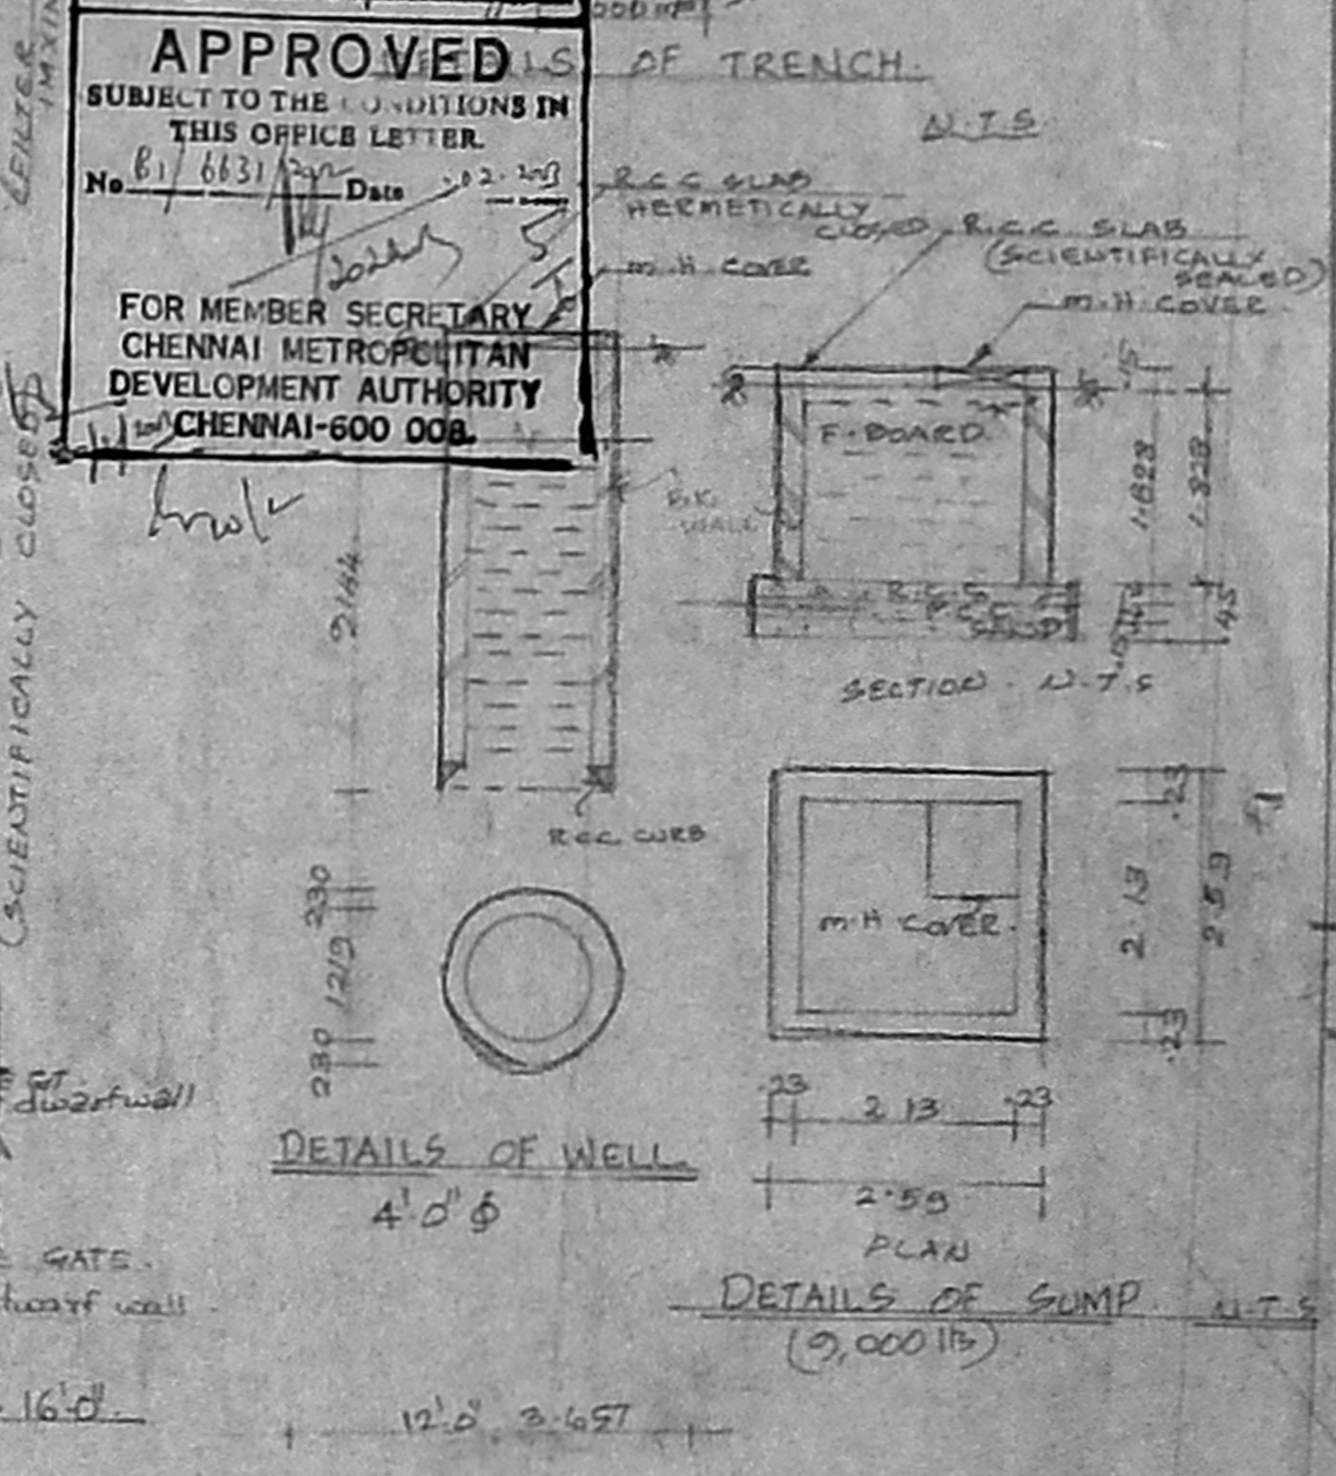 APPROVED
SUBJECT TO THE CONDITIONS IN
THIS OFFICE LETTER.
No. B1/6631/ Date .02.2003
FOR MEMBER SECRETARY
CHENNAI METROPOLITAN
DEVELOPMENT AUTHORITY
CHENNAI-600 008.
OF TRENCH.
N.T.S
R.C.C SLAB
HERMETICALLY
CLOSED
M.H. COVER
R.C.C SLAB
(SCIENTIFICALLY
SEALED)
M.H. COVER
F. BOARD
B.K.
WALL
1.828
.45
R.C.C
P.C.C
SAND
SECTION. N.T.S
2144
RCC CURB
230
1219
230
DETAILS OF WELL
4'.0" ϕ
M.H. COVER.
.23
2.13
.23
2.59
.23
2.13
.23
2.59
PLAN
DETAILS OF SUMP. N.T.S
(9,000 lts)
(SCIENTIFICALLY CLOSED)
dwarf wall
GATE.
dwarf wall
16'0".
12'.0" 3.657